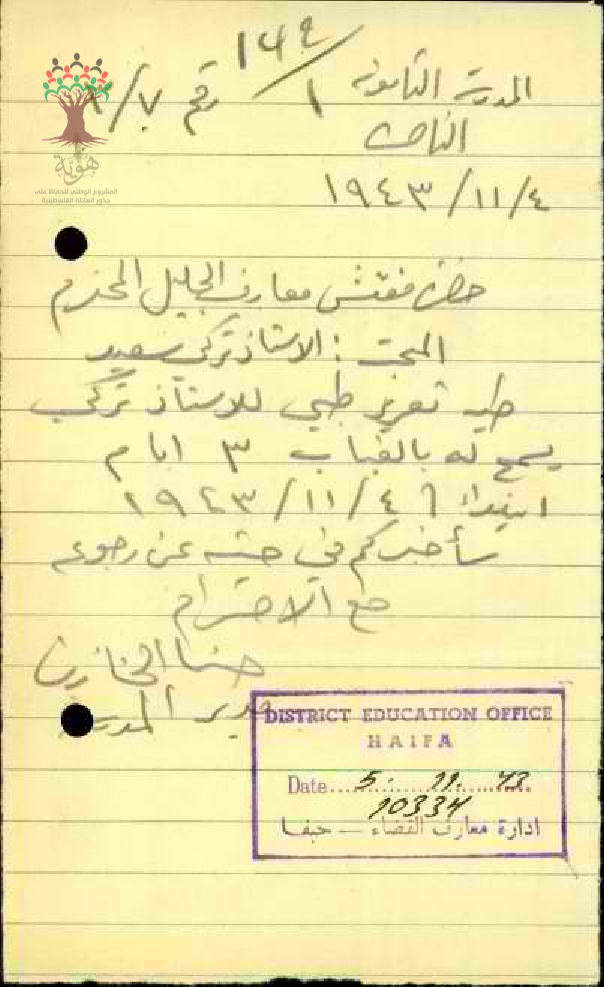 ١٤٩/١
المدرسة الثانوية
رقم ٧/٢
الناصرة
١٩٤٣/١١/٤
هوية
المشروع الوطني للحفاظ على
جذور العائلة الفلسطينية
حضرة مفتش معارف الجليل المحترم
المبحث : الاستاذ تركي سعيد
طيه تقرير طبي للاستاذ تركي
يسمح له بالغياب ٣ ايام
ابتداء ٤ / ١١ / ١٩٤٣
سأخبركم في حينه عن رجوعه
مع الاحترام
حنا الخازن
مدير المدرسة
DISTRICT EDUCATION OFFICE
HAIFA
Date 5. 11. 43
10334
ادارة معارف القضاء — حيفا